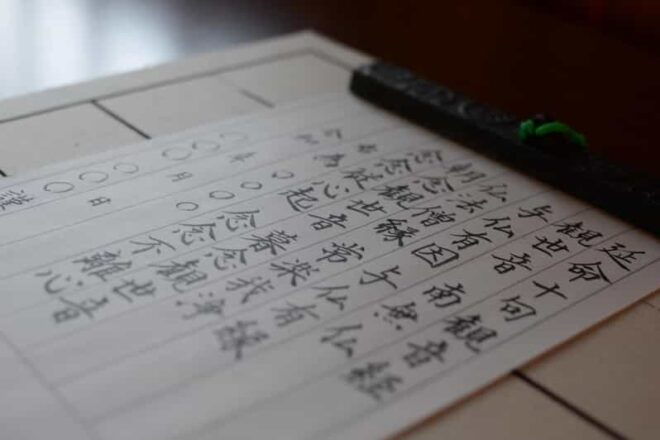 延命十句観音経
観世音南無仏
与仏有因与仏有縁
仏法僧縁常楽我浄
朝念観世音暮念観世音
念念従心起念念不離心
年〇月〇日
〇〇〇〇謹